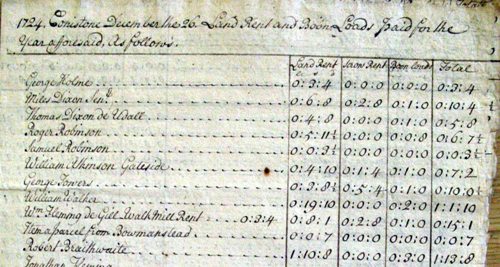 1724. Conistone December the 26. Land Rent and Boon Loads Paid for the
Year afforesaid, As follows.
Land Rent Rent Boon loads Total
George Holme 0:3:4 0:0:0 0:0:0 0:3:4
Miles Dixon Senr 0:6:8 0:2:8 0:1:0 0:10:4
Thomas Dixon de Udall 0:4:8 0:0:0 0:1:0 0:5:8
Roger Robinson 0:5:11½ 0:0:0 0:0:8 0:6:7½
Samuel Robinson 0:0:3½ 0:0:0 0:0:0 0:0:3½
William Atkinson Gateside 0:4:10 0:1:4 0:1:0 0:7:2
George Towers 0:3:8½ 0:5:4 0:1:0 0:10:0½
William Walker 0:19:10 0:0:0 0:2:0 1:1:10
Wm Fleming de Gill Walkmill Rent 0:3:4 0:8:1 0:2:8 0:1:0 0:15:1
Item a parcel from Bowmanstead 0:0:7 0:0:0 0:0:0 0:0:7
Robert Braithwaite 1:10:8 0:0:0 0:3:0 1:13:8
Jonathan Fleming